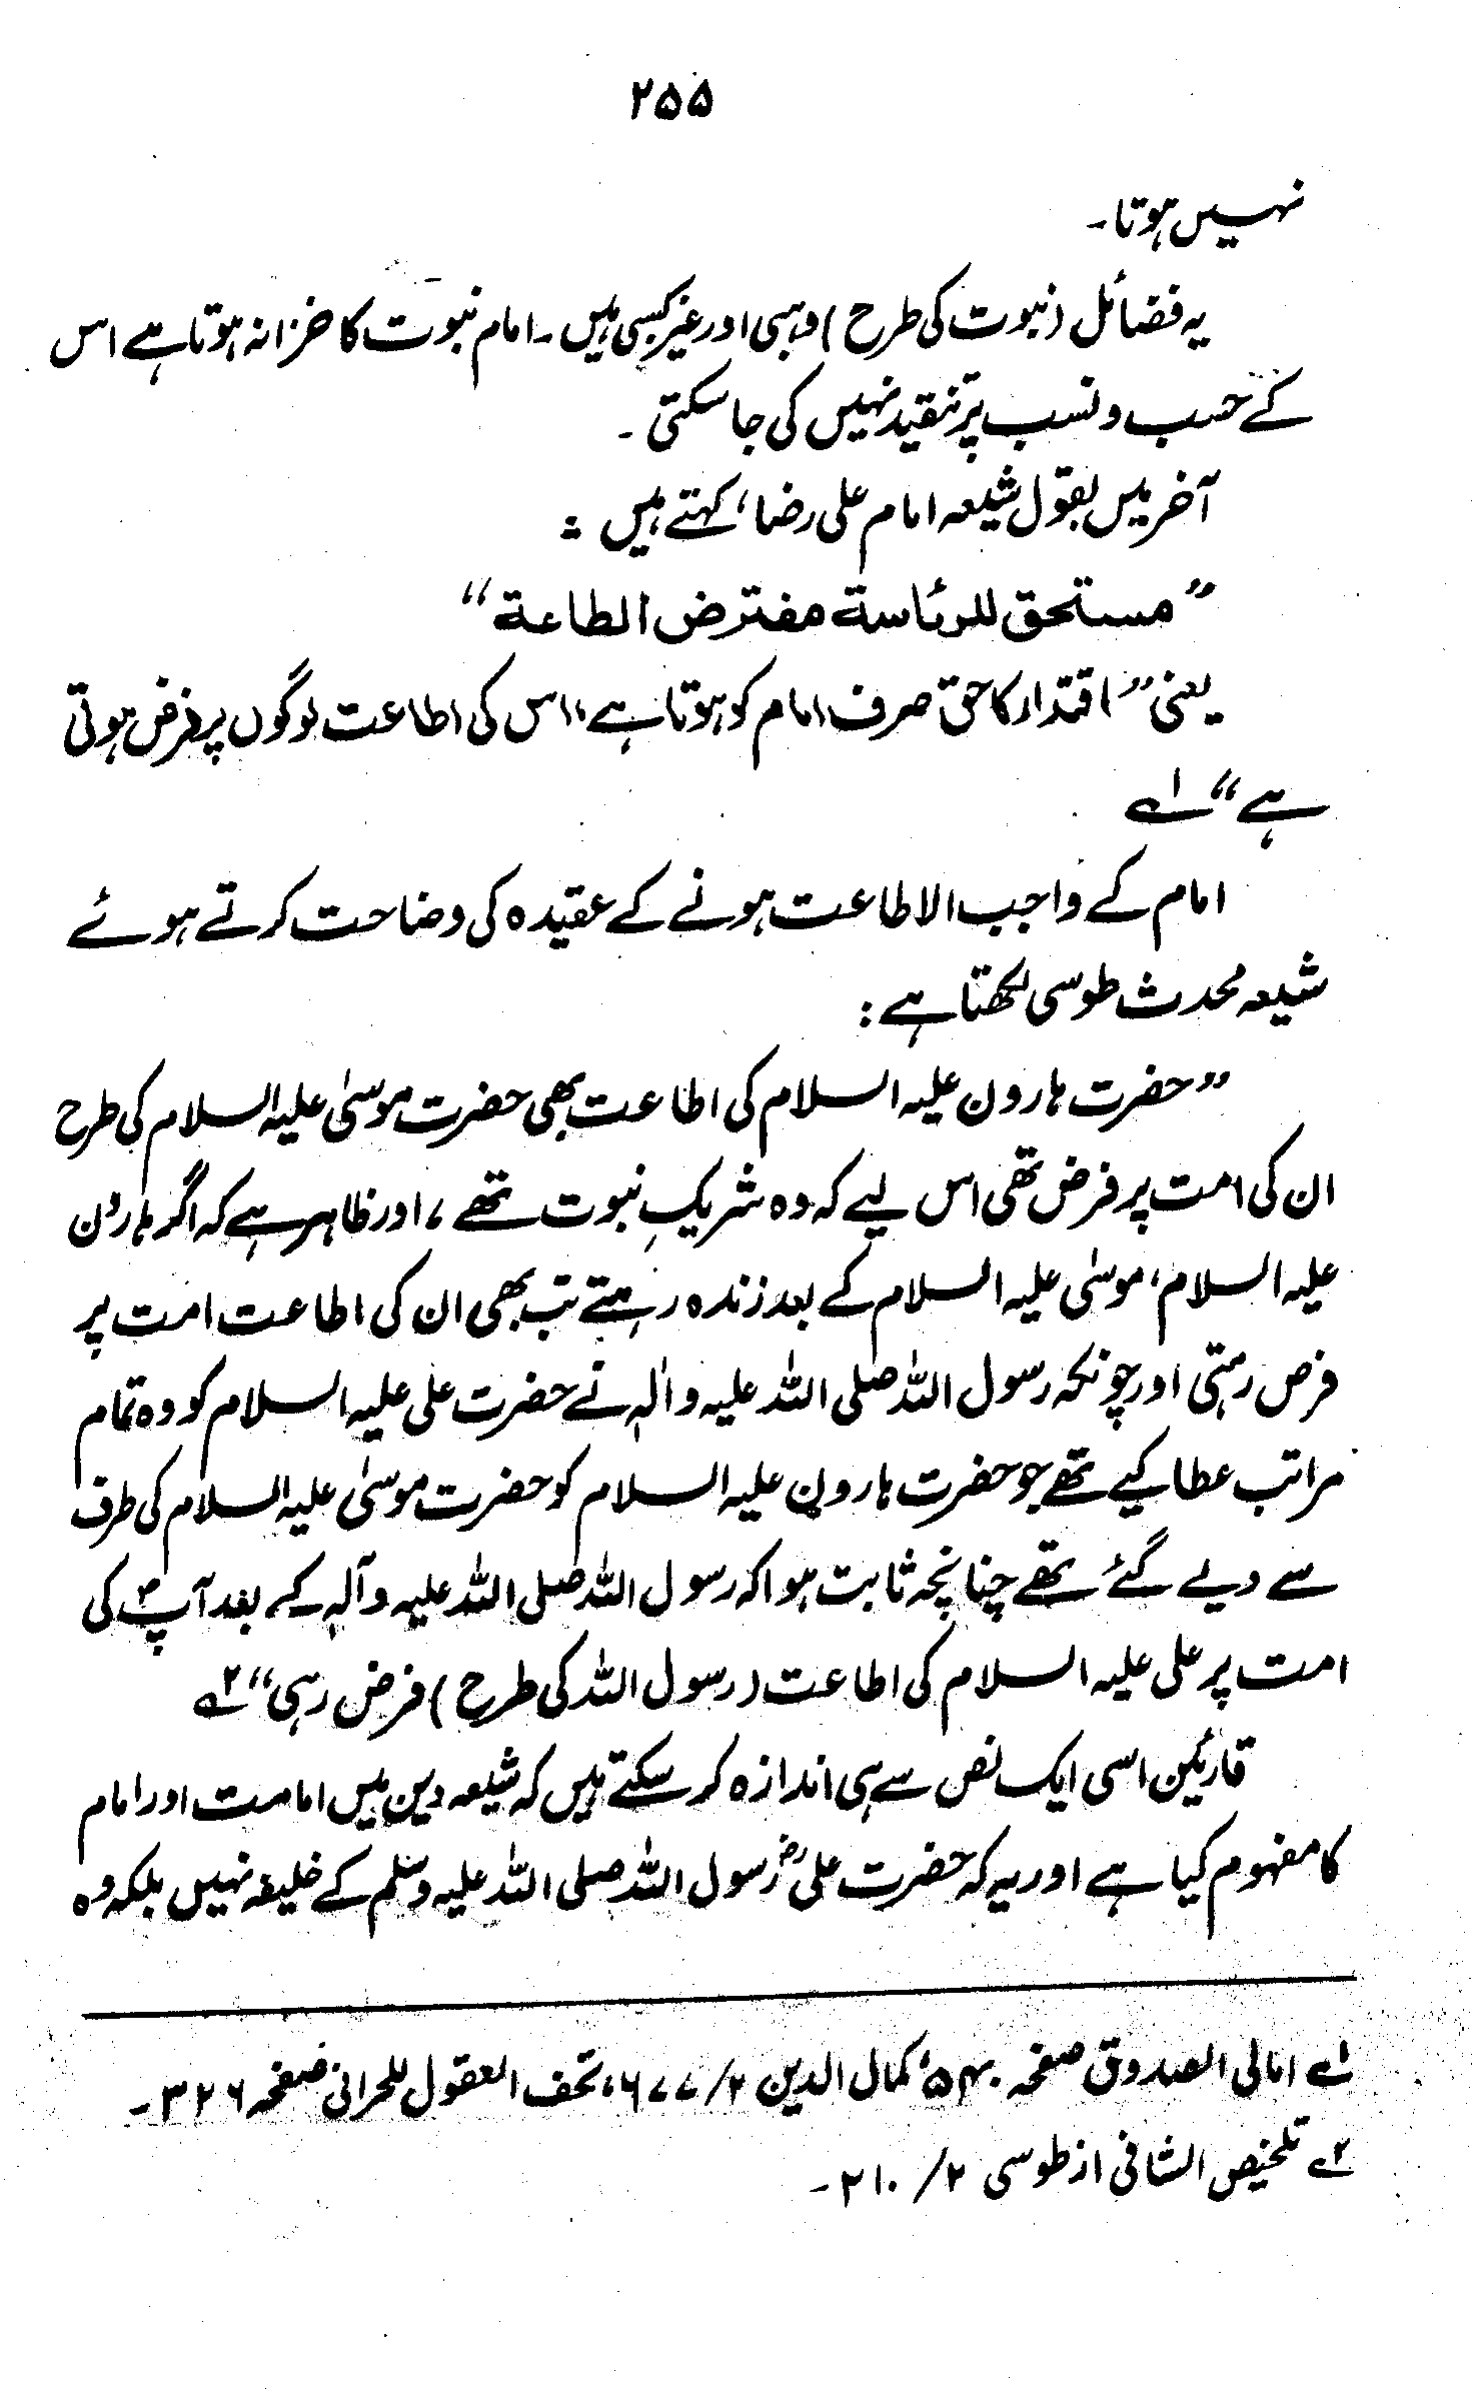 ۲۵۵
نہیں ہوتا۔
یہ فضائل (نبوت کی طرح) وہبی اور غیر کسبی ہیں۔ امام نبوت کا خزانہ ہوتا ہے اس
کے حسب و نسب پر تنقید نہیں کی جا سکتی۔
آخر میں بقول شیعہ امام علی رضا، کہتے ہیں :
”مستحق للرئاسة مفترض الطاعة“
یعنی ”اقتدار کا حق صرف امام کو ہوتا ہے، اس کی اطاعت لوگوں پر فرض ہوتی
ہے“ ۱ے
امام کے واجب الاطاعت ہونے کے عقیدہ کی وضاحت کرتے ہوئے
شیعہ محدث طوسی لکھتا ہے :
”حضرت ہارون علیہ السلام کی اطاعت بھی حضرت موسیٰ علیہ السلام کی طرح
ان کی امت پر فرض تھی اس لیے کہ وہ شریکِ نبوت تھے، اور ظاہر ہے کہ اگر ہارون
علیہ السلام، موسیٰ علیہ السلام کے بعد زندہ رہتے تب بھی ان کی اطاعت امت پر
فرض رہتی اور چونکہ رسول اللہ صلی اللہ علیہ والہٖ نے حضرت علی علیہ السلام کو وہ تمام
مراتب عطا کیے تھے جو حضرت ہارون علیہ السلام کو حضرت موسیٰ علیہ السلام کی طرف
سے دیے گئے تھے چنانچہ ثابت ہوا کہ رسول اللہ صلی اللہ علیہ وآلہٖ کے بعد آپؐ کی
امت پر علی علیہ السلام کی اطاعت (رسول اللہ کی طرح) فرض رہی“ ۲ے
قارئین اسی ایک نص سے ہی اندازہ کر سکتے ہیں کہ شیعہ دین میں امامت اور امام
کا مفہوم کیا ہے اور یہ کہ حضرت علیؓ رسول اللہ صلی اللہ علیہ وسلم کے خلیفہ نہیں بلکہ وہ
۱ے امالی الصدوق صفحہ ۵۴۰، کمال الدین ۲/۶۷۷، تحف العقول للحرانی صفحہ ۳۲۶۔
۲ے تلخیص الشافی از طوسی ۲/۲۱۰۔